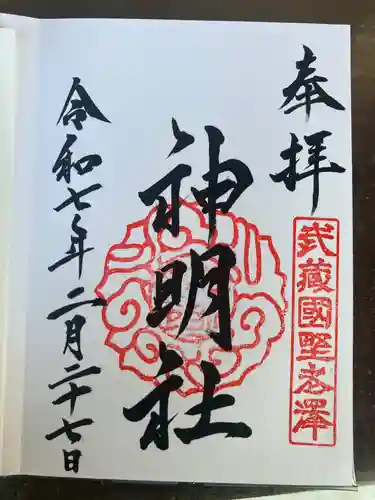 奉拝
武藏國野老澤
神明社
令和七年二月二十七日